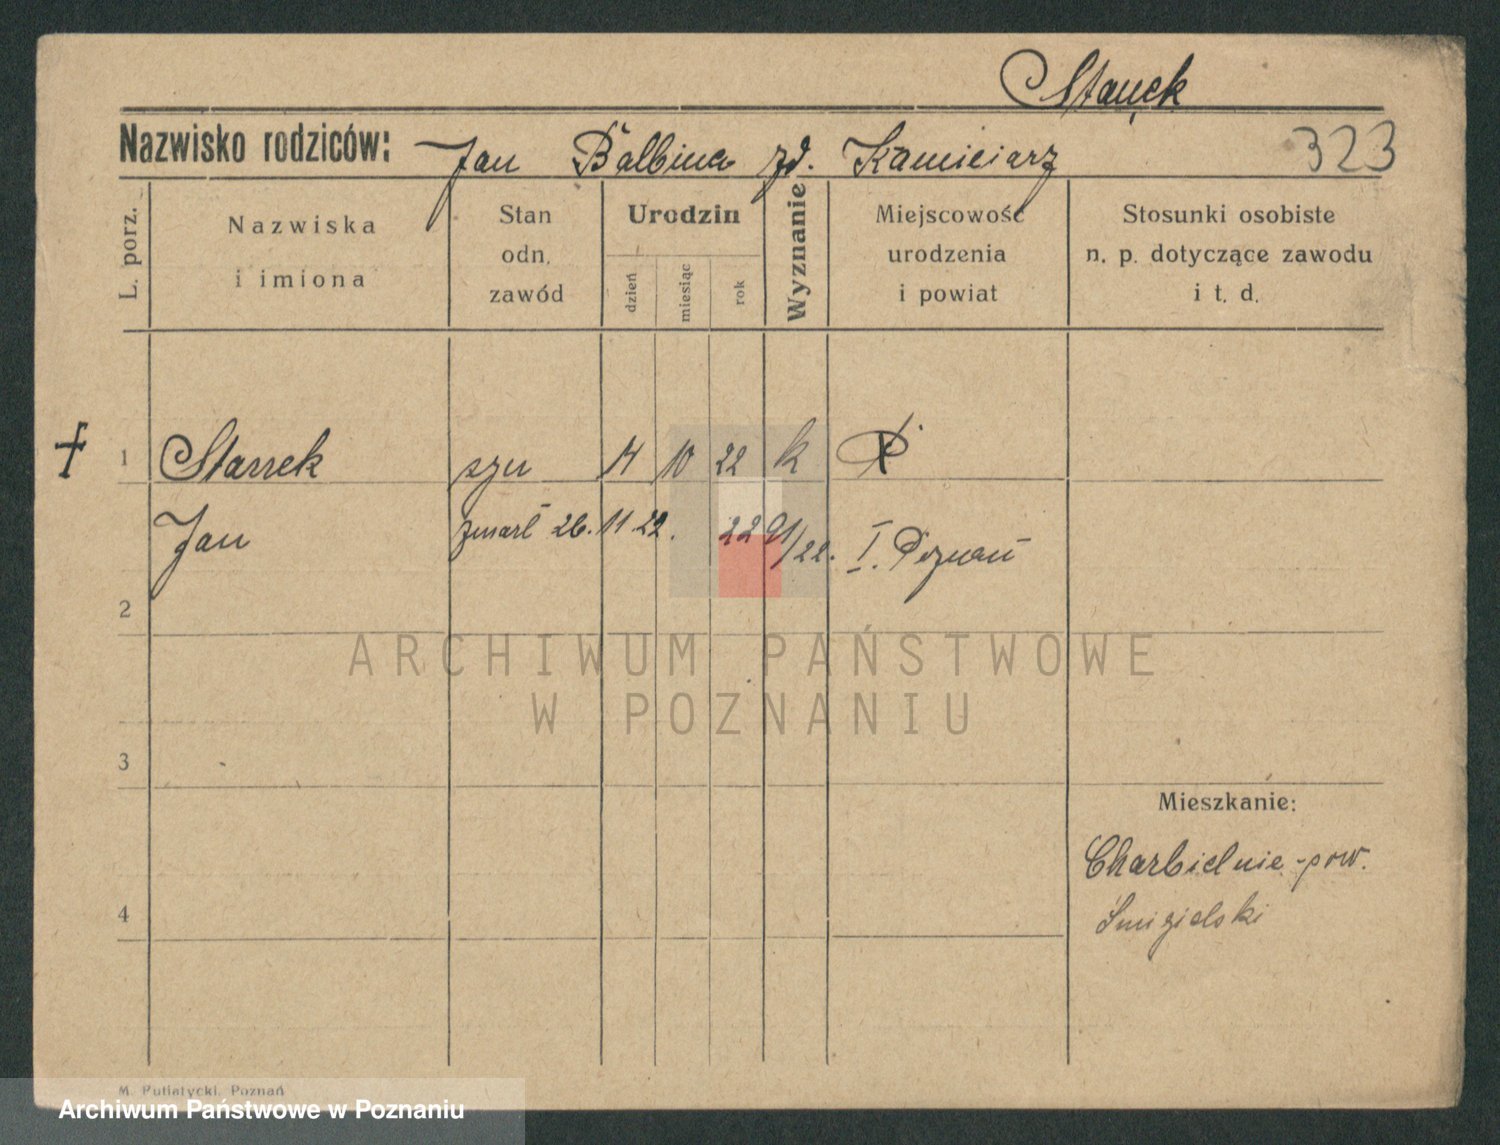 Stanek
Nazwisko rodziców: Jan Balbina zd. Kamieniarz 323
L. porz.
Nazwiska
i imiona
Stan
odn.
zawód
Urodzin
dzień
miesiąc
rok
Wyznanie
Miejscowość
urodzenia
i powiat
Stosunki osobiste
n. p. dotyczące zawodu
i t. d.
† 1 syn 14 10 22 k P
Jan zmarł 26.11.22. I. Poznań
2
ARCHIWUM PAŃSTWOWE
W POZNANIU
3
Mieszkanie:
Charbielnie - pow.
4
Śmigielski
M. Putiatycki, Poznań
Archiwum Państwowe w Poznaniu